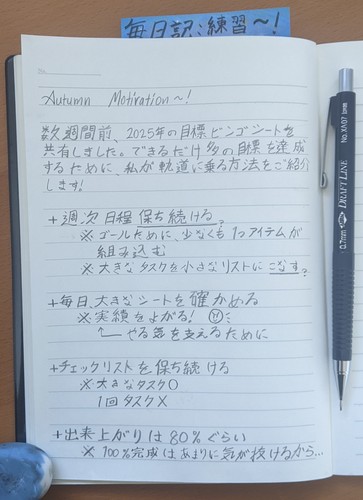 毎日記:練習〜!
Autumn Motivation〜!
数週間前、2025年の目標ビンゴシートを
共有しました。できるだけ多の目標を達成
するために、私が軌道に乗る方法をご紹介
します!
+週次日程保ち続ける?
※ゴールために、少なくも1つアイテムが
組み込む
※大きなタスクを小さなリストにこなす?
+毎日、大きなシートを確かめる
※実績をよがる!
やる気を支えるために
+チェックリストを保ち続ける
※大きなタスク○
1回タスク×
+出来上がりは80%ぐらい
※100%完成はあまりに気が抜けるから...
No. XA07
0.7mm DRAFT/LINE